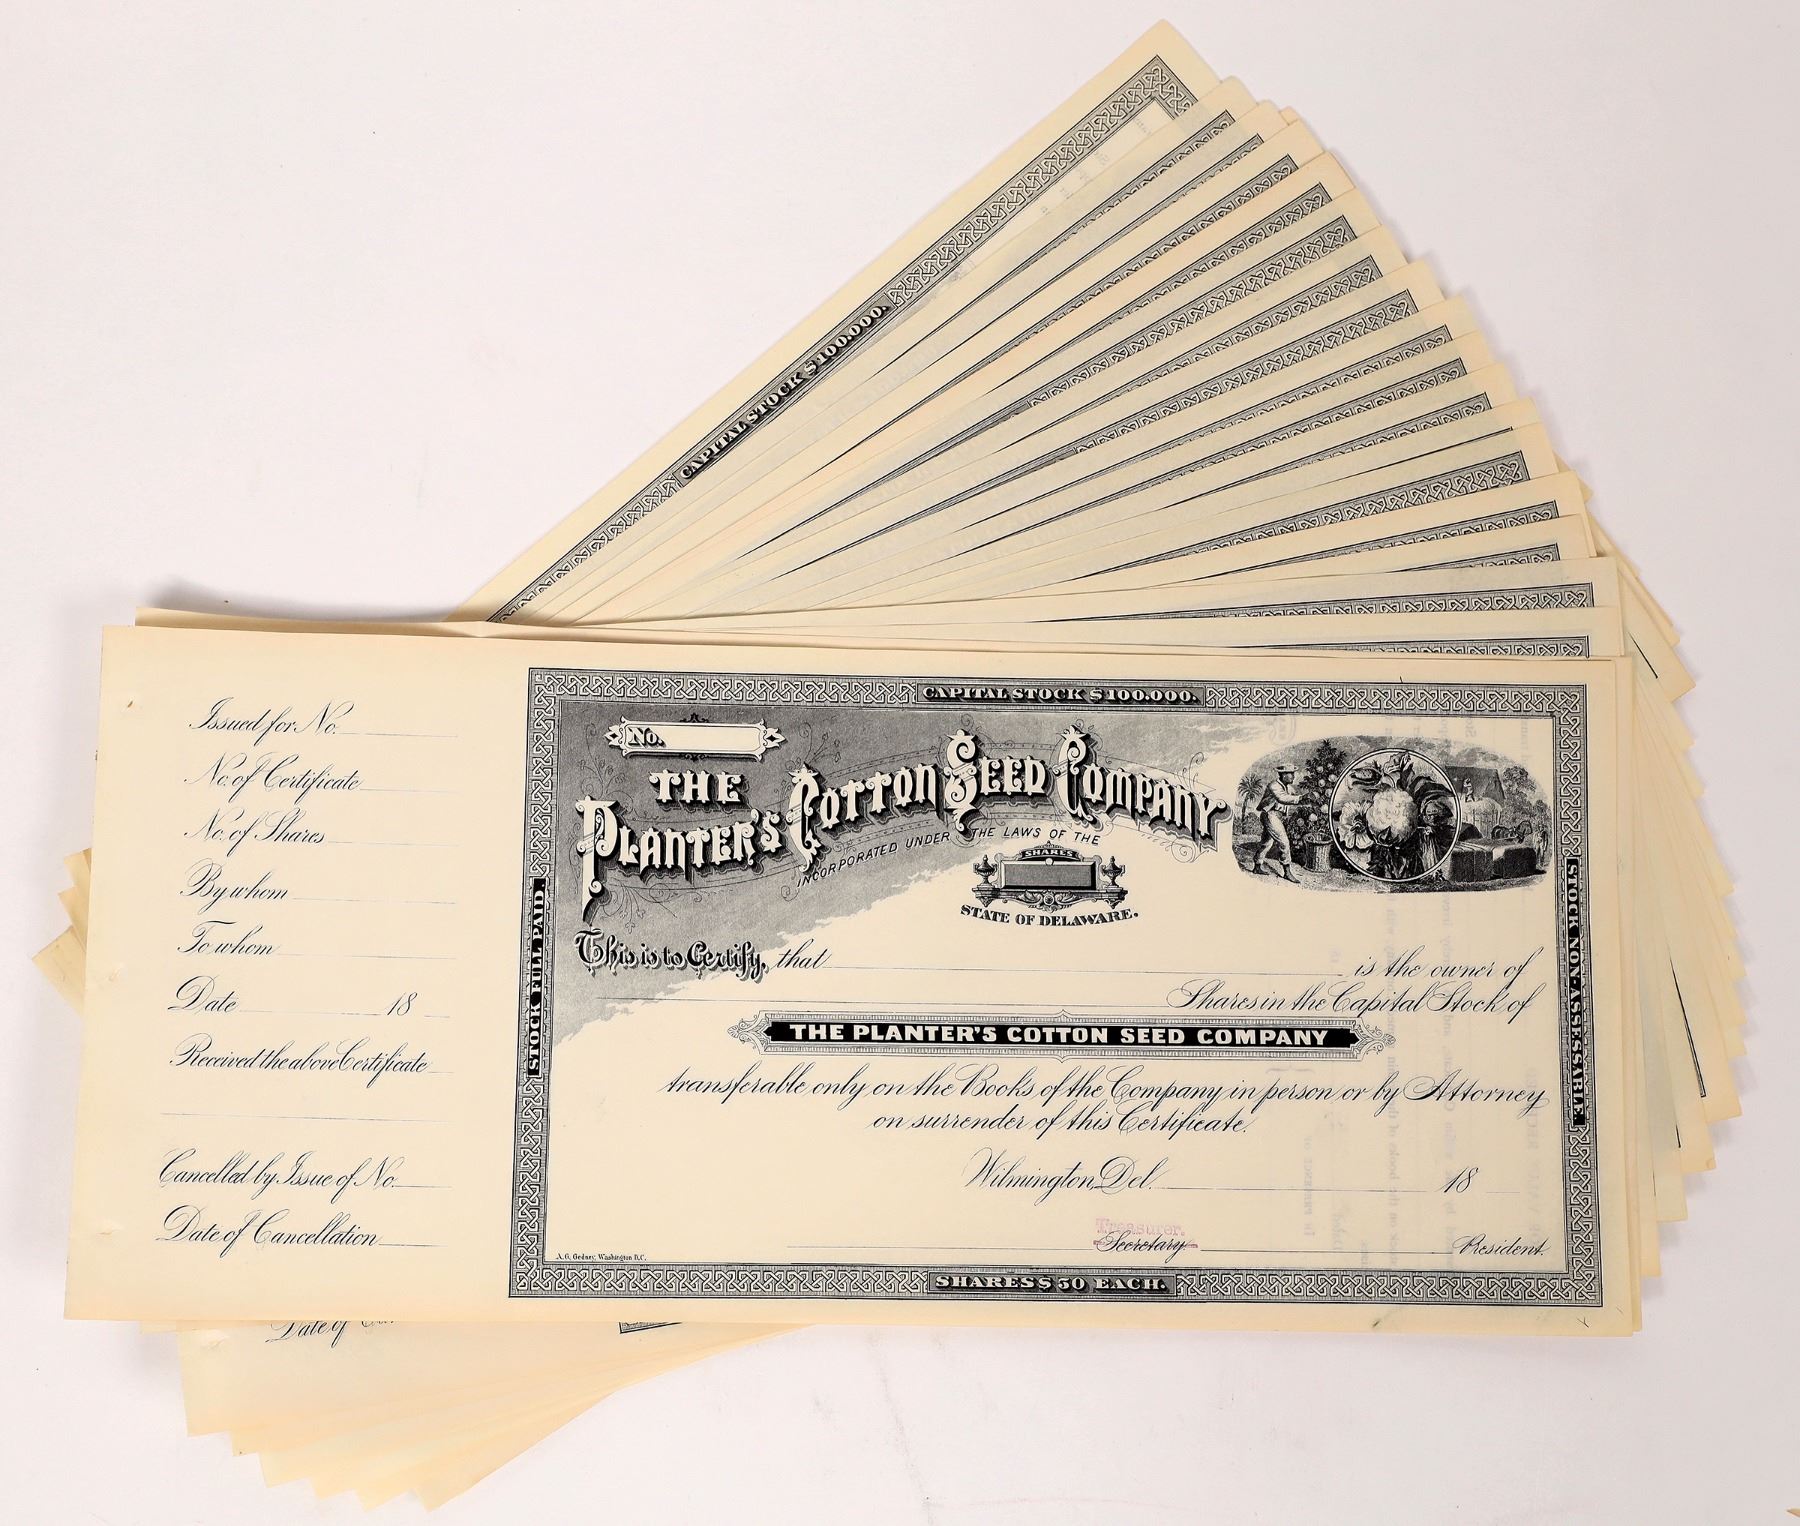 CAPITAL STOCK $100.000.
Issued for No.
No. of Certificate
No. of Shares
By whom
To whom
Date 18
Received the above Certificate
Cancelled by Issue of No.
Date of Cancellation
Date of
STOCK FULL PAID.
CAPITAL STOCK $100.000.
No.
THE
PLANTER'S COTTON SEED COMPANY
INCORPORATED UNDER THE LAWS OF THE
SHARES
STATE OF DELAWARE.
This is to Certify, that is the owner of
Shares in the Capital Stock of
THE PLANTER'S COTTON SEED COMPANY
transferable only on the Books of the Company in person or by Attorney
on surrender of this Certificate.
Wilmington, Del. 18
Treasurer.
Secretary. President.
A. G. Gedney, Washington D.C.
SHARES $50 EACH.
STOCK NON-ASSESSABLE.